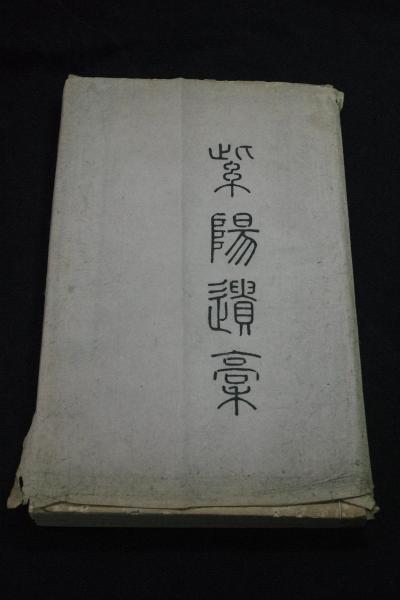 紫陽遺稾